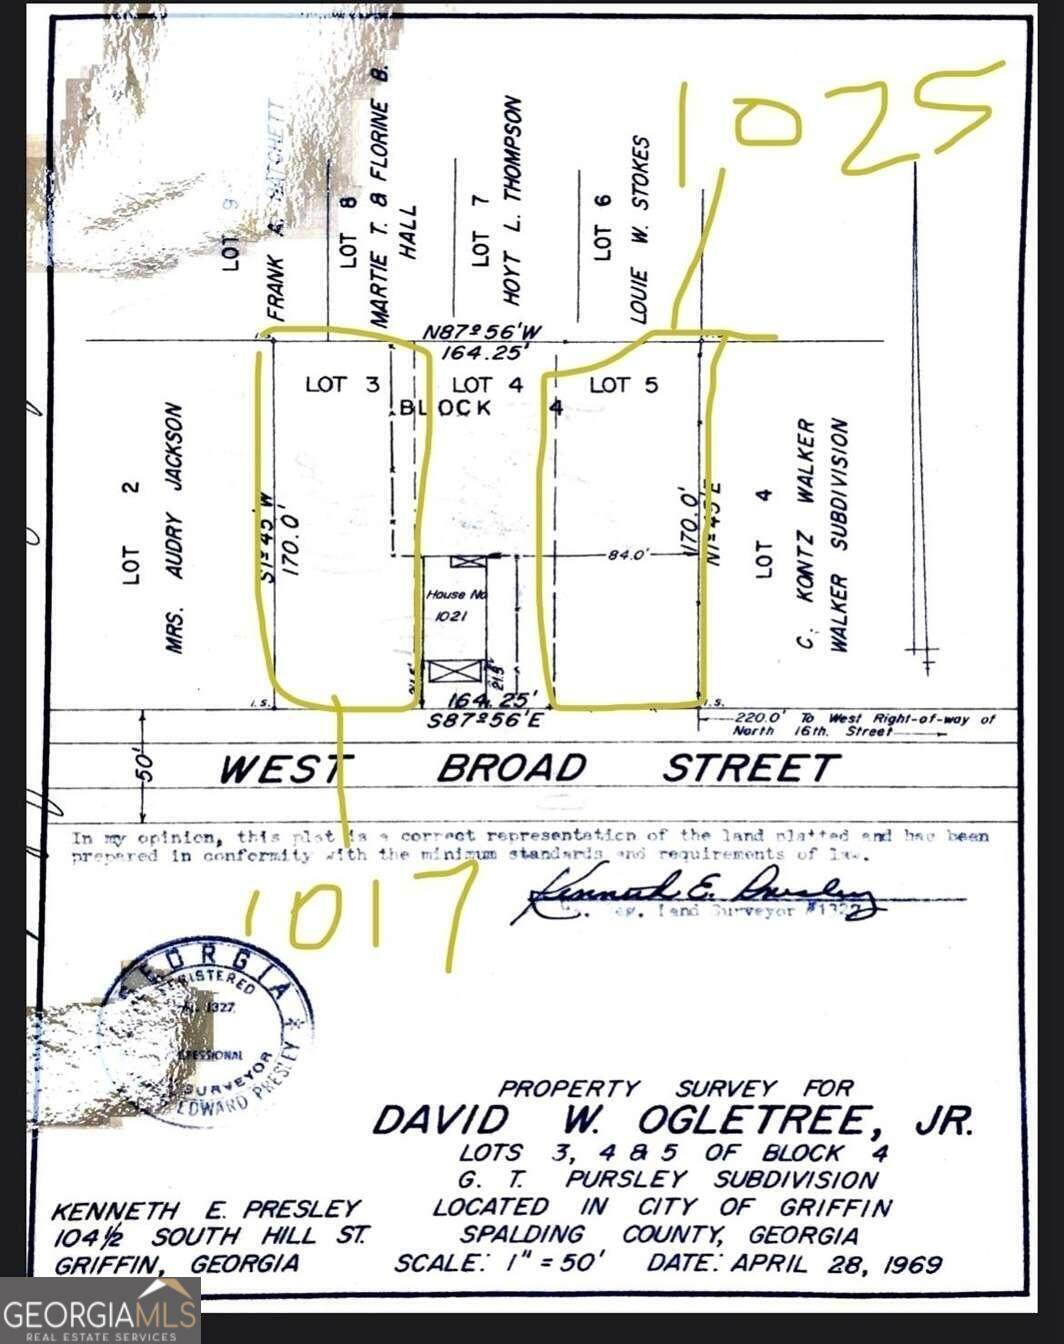 1025
LOT 9
FRANK A. HATCHETT
LOT 8
MARTIE T. & FLORINE B.
HALL
LOT 7
HOYT L. THOMPSON
LOT 6
LOUIE W. STOKES
I.S.
N87º56'W
164.25'
LOT 3
LOT 4
LOT 5
BLOCK 4
LOT 2
MRS. AUDRY JACKSON
S1º45'W
170.0'
170.0'
N1º45'E
LOT 4
C. KONTZ WALKER
WALKER SUBDIVISION
84.0'
House No
1021
21.5'
21.5'
I.S.
164.25'
S87º56'E
I.S.
220.0' To West Right-of-way of
North 16th. Street
50'
WEST BROAD STREET
In my opinion, this plat is a correct representation of the land platted and has been
prepared in conformity with the minimum standards and requirements of law.
1017
Kenneth E. Presley
Reg. Land Surveyor #1327
GEORGIA
REGISTERED
No. 1327
PROFESSIONAL
SURVEYOR
EDWARD PRESLEY
PROPERTY SURVEY FOR
DAVID W. OGLETREE, JR.
LOTS 3, 4 & 5 OF BLOCK 4
G. T. PURSLEY SUBDIVISION
LOCATED IN CITY OF GRIFFIN
SPALDING COUNTY, GEORGIA
SCALE: 1" = 50' DATE: APRIL 28, 1969
KENNETH E. PRESLEY
104½ SOUTH HILL ST.
GRIFFIN, GEORGIA
GEORGIAMLS
REAL ESTATE SERVICES